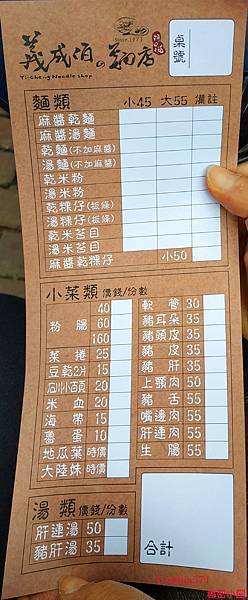 義成伯の麵店
since.1973
Yi-Cheng Noodle shop
桌號
麵類 小45 大55 備註
麻醬乾麵
麻醬湯麵
乾麵(不加麻醬)
湯麵(不加麻醬)
乾米粉
湯米粉
乾粿仔(板條)
湯粿仔(板條)
乾米苔目
湯米苔目
麻醬乾粿仔 小50
小菜類 價錢/份數
粉腸 40
60
160
菜捲 25
豆乾2片 15
小卜頭 20
米血 20
海帶 15
魯蛋 10
地瓜葉 時價
大陸妹 時價
軟管 30
豬耳朵 35
豬頭皮 35
豬皮 35
豬肝 35
上顎肉 50
豬舌 55
嘴邊肉 55
肝連肉 55
生腸 55
湯類 價錢/份數
肝連湯 50
豬肝湯 35
合計